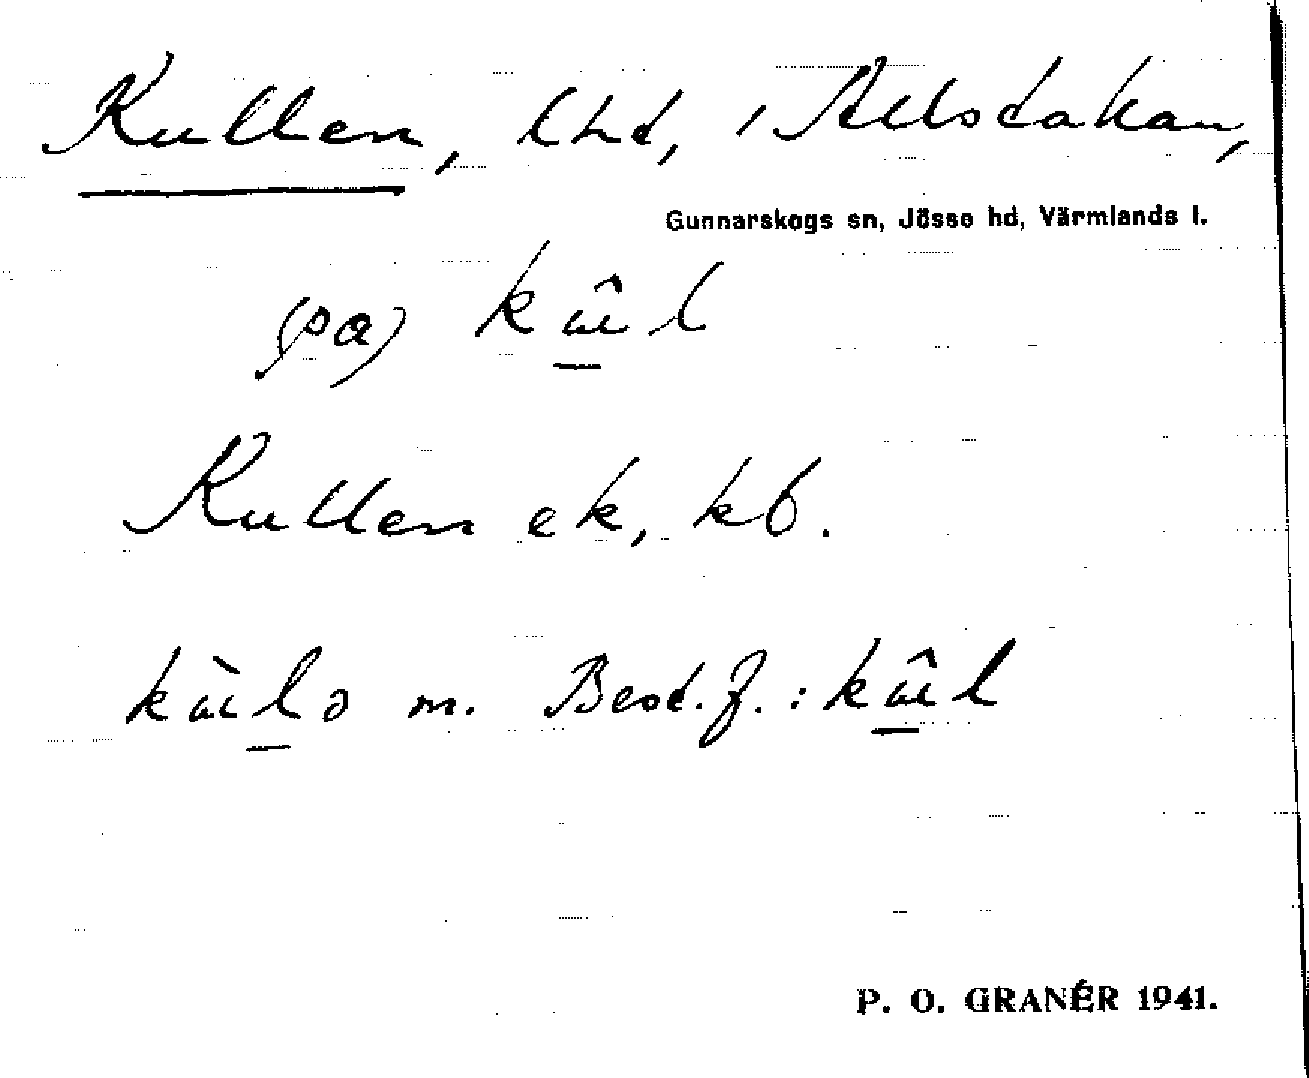 Kullen, lht, i Stelsdakan,
Gunnarskogs sn, Jösse hd, Värmlands l.
(pa) kûl
Kullen ek, kb.
kùlə m. Best. f. : kûl
P. O. GRANÉR 1941.